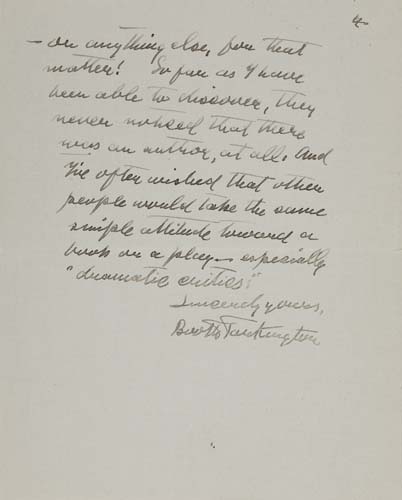 4
— or anything else, for that
matter! So far as I have
been able to discover, they
never noticed that there
was an author, at all. And
I've often wished that other
people would take the same
simple attitude toward a
book or a play — especially
"dramatic critics"!
Sincerely yours,
Booth Tarkington